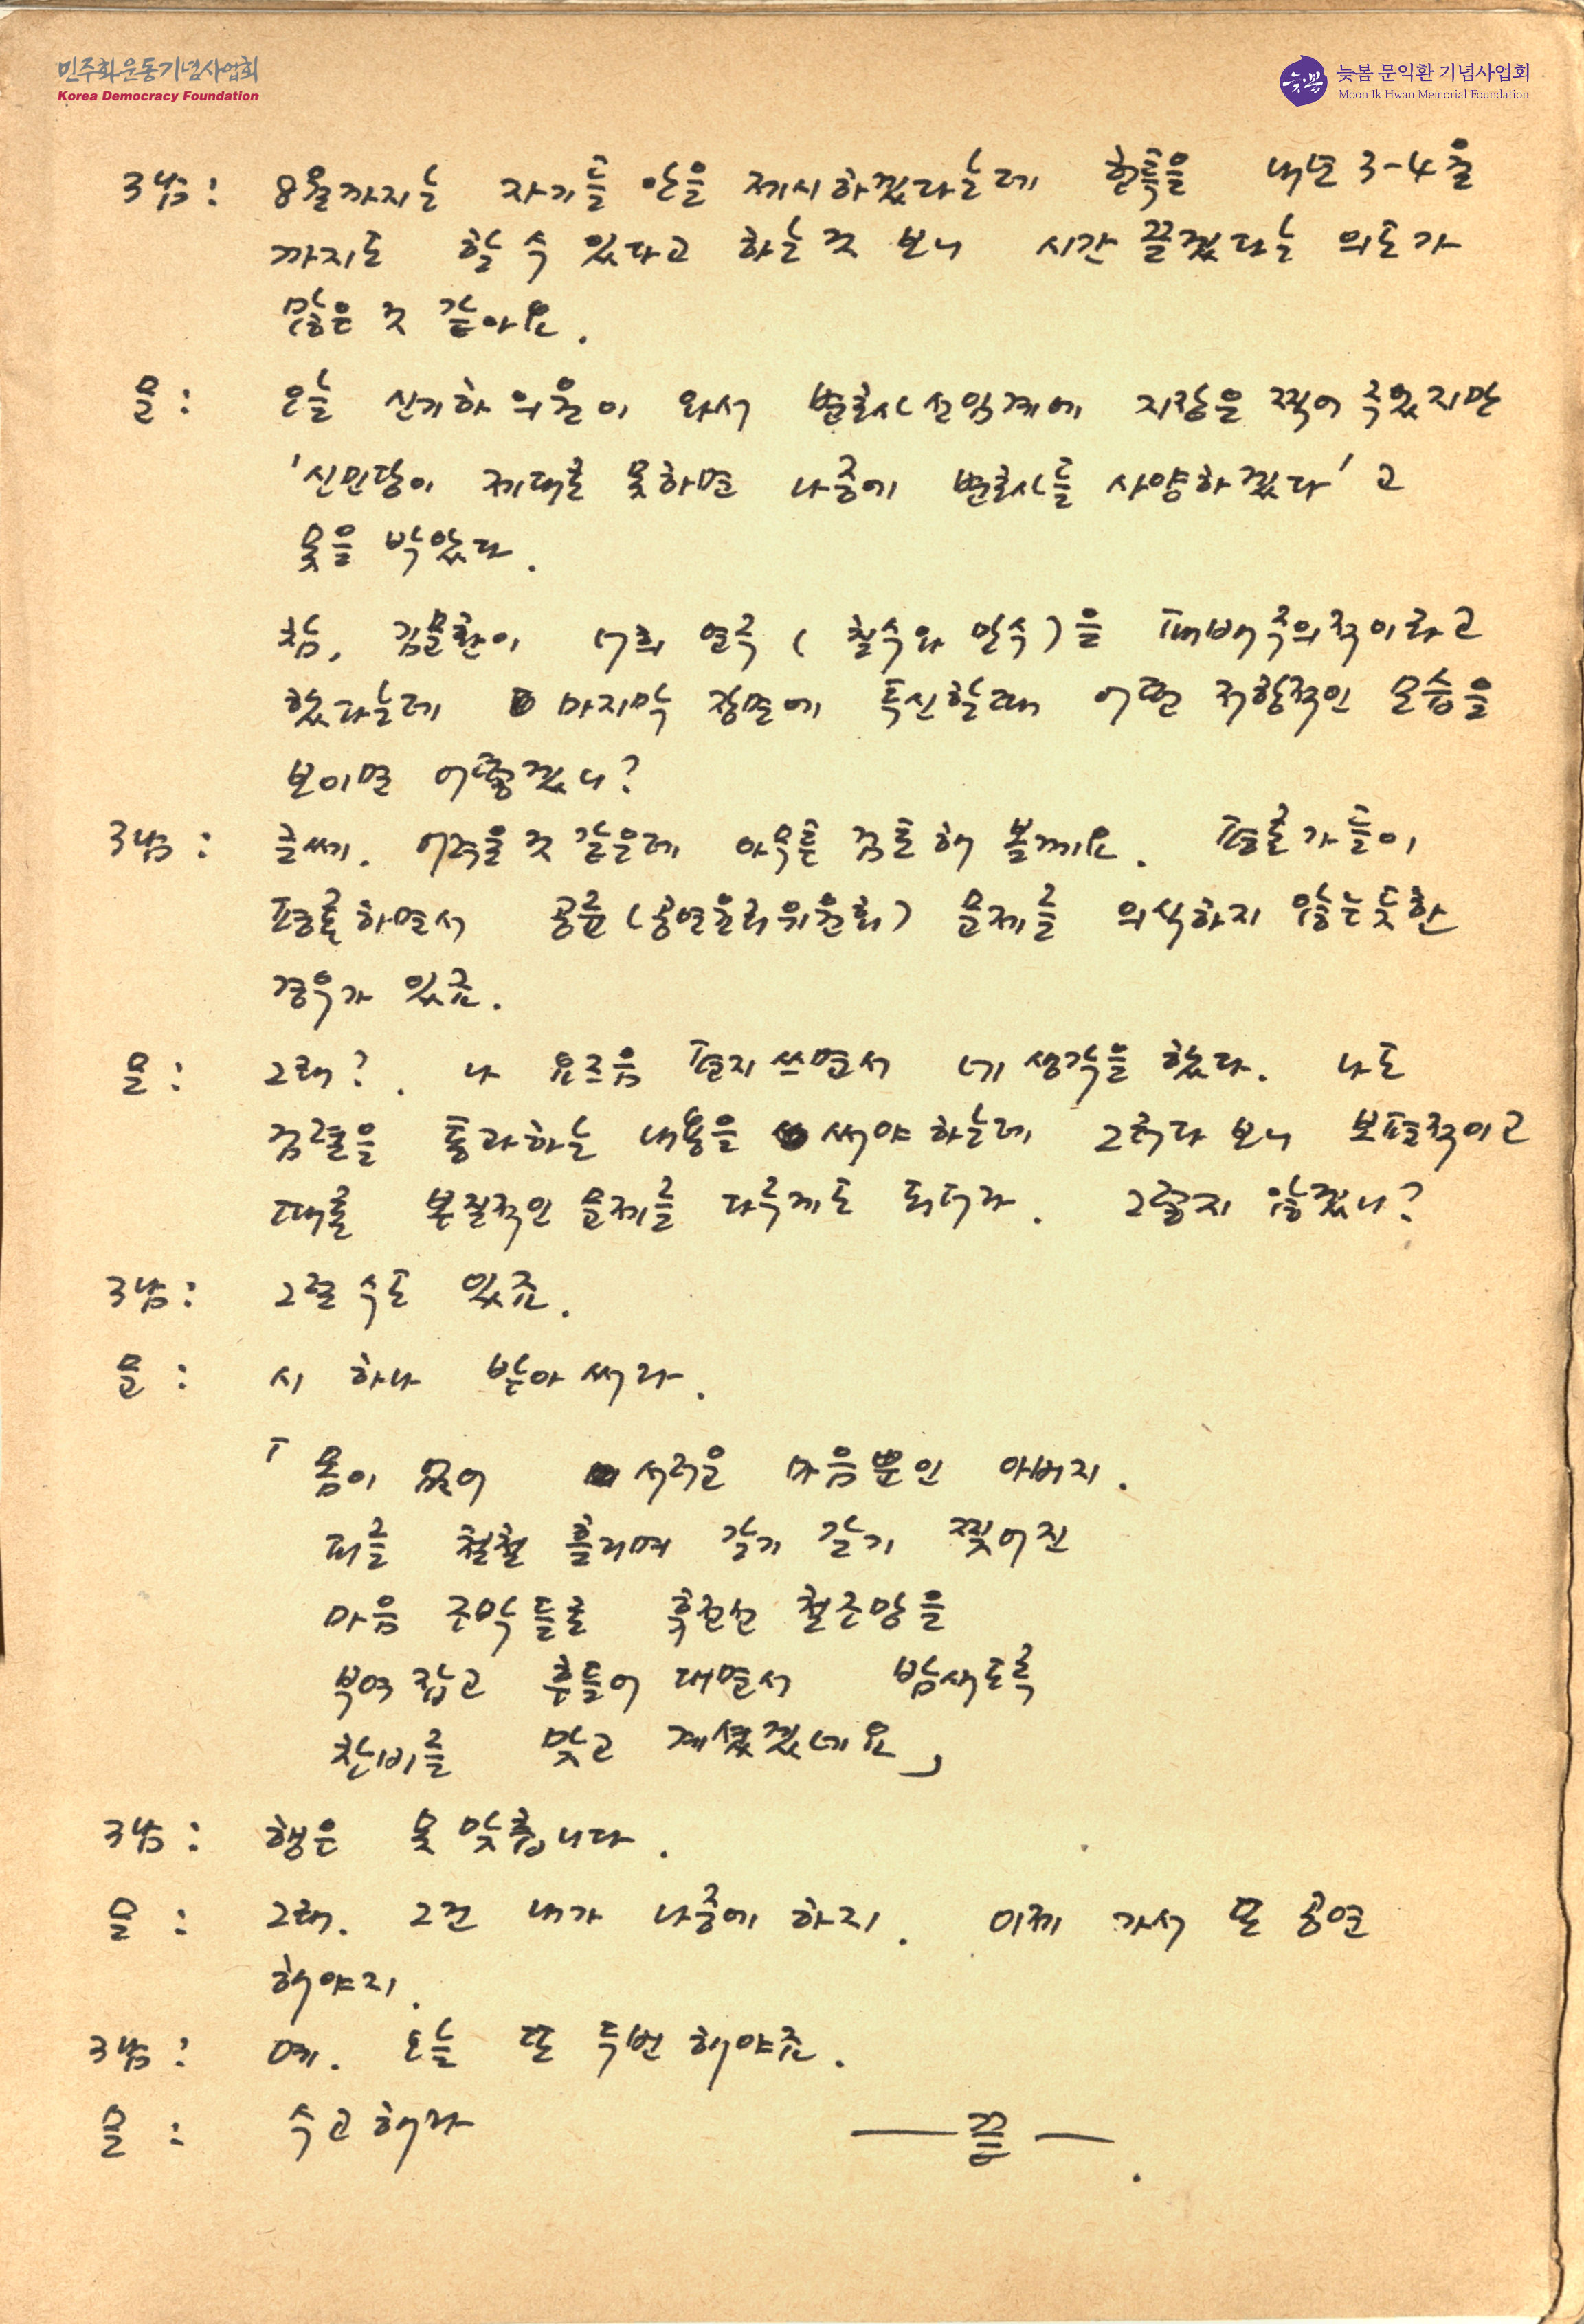 민주화운동기념사업회
Korea Democracy Foundation
늦봄
늦봄 문익환 기념사업회
Moon Ik Hwan Memorial Foundation
3남 : 8월까지는 자기들 안을 제시하겠다는데 협상을 내년 3-4월
까지도 할 수 있다고 하는 것 보니 시간 끌겠다는 의도가
많은 것 같아요.
문 : 오늘 신기하 의원이 와서 변호사 선임계에 지장은 찍어 주었지만
'신민당이 제대로 못하면 나중에 변호사들 사양하겠다'고
못을 박았다.
참, 김문환이 너희 연극 ( 칠수와 만수 )을 패배주의적이라고
했다는데 마지막 장면에 투신할때 어떤 저항적인 모습을
보이면 어떻겠니?
3남 : 글쎄. 어려울 것 같은데 아무튼 검토해 볼께요. 평론가들이
평론하면서 공륜(공연윤리위원회) 문제를 의식하지 않는듯한
경우가 있죠.
문 : 그래?. 나 요즈음 편지 쓰면서 네 생각을 했다. 나도
검열을 통과하는 내용을 써야 하는데 그러다 보니 보편적이고
때론 본질적인 문제를 다루게도 되더라. 그렇지 않겠니?
3남 : 그럴 수도 있죠.
문 : 시 하나 받아 써라.
「 몸이 없어 서러운 마음뿐인 아버지.
피를 철철 흘리며 갈기 갈기 찢어진
마음 조각들로 휴전선 철조망을
부여 잡고 흔들어 대면서 밤새도록
찬비를 맞고 계셨겠네요」
3남 : 행은 못 맞춥니다.
문 : 그래. 그건 내가 나중에 하지. 이제 가서 또 공연
해야지.
3남 : 예. 오늘 또 두번 해야죠.
문 : 수고해라 — 끝 —.